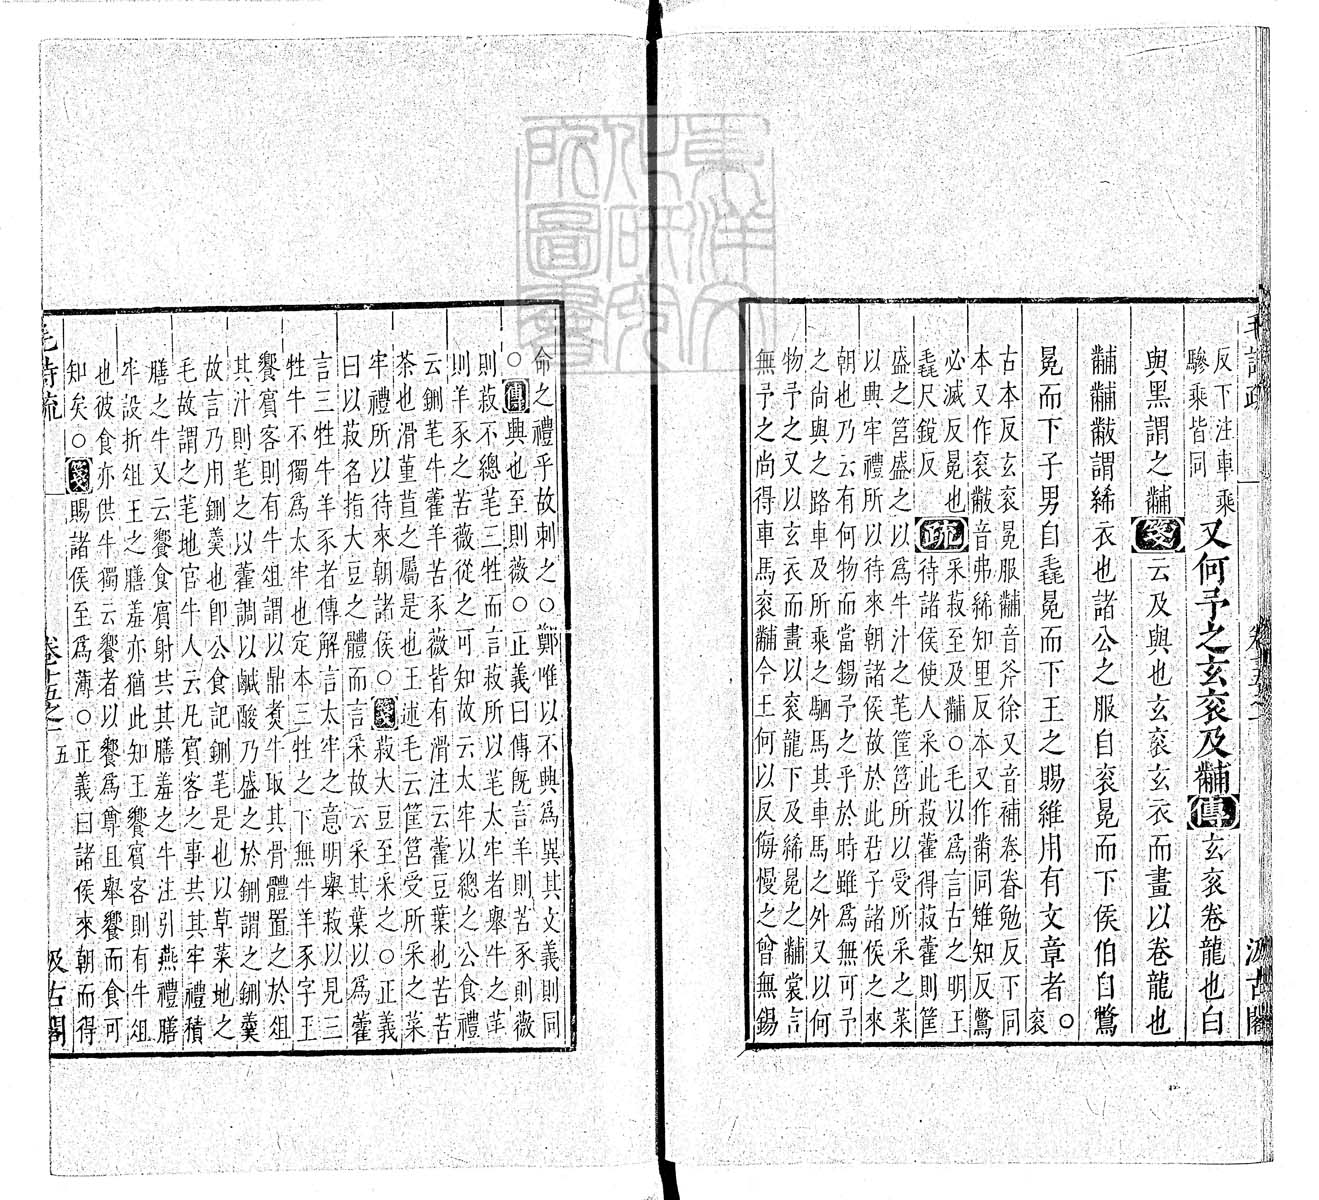 毛詩疏 卷十五之一 汲古閣
反下注車乘
驂乘皆同
又何予之玄衮及黼傳玄衮卷龍也白
與黑謂之黼箋云及與也玄衮玄衣而畫以卷龍也
黼黼黻謂絺衣也諸公之服自衮冕而下侯伯自鷩
冕而下子男自毳冕而下王之賜維用有文章者○衮
古本反玄衮冕服黼音斧徐又音補卷眷勉反下同
本又作衮黻音弗絺知里反本又作黹同雉知反鷩
必滅反冕也
毳尺銳反
疏采菽至及黼○毛以為言古之明王
待諸侯使人采此菽藿得菽藿則筐
盛之筥盛之以為牛汁之芼筐筥所以受所采之菜
以興牢禮所以待來朝諸侯故於此君子諸侯之來
朝也乃云有何物而當錫予之乎於時雖為無可予
之尚與之路車及所乘之駟馬其車馬之外又以何
物予之又以玄衣而畫以衮龍下及絺冕之黼裳言
無予之尚得車馬衮黼今王何以反侮慢之曾無錫
命之禮乎故刺之○鄭唯以不興為異其文義則同
○傳興也至則薇○正義曰傳既言羊則苦豕則薇
則菽不總芼三牲而言菽所以芼太牢者舉牛之芼
則羊豕之苦薇從之可知故云太牢以總之公食禮
云鉶芼牛藿羊苦豕薇皆有滑注云藿豆葉也苦苦
荼也滑菫荁之屬是也王述毛云筐筥受所采之菜
牢禮所以待來朝諸侯○箋菽大豆至采之○正義
曰以菽名指大豆之體而言采故云采其葉以為藿
言三牲牛羊豕者傳解言太牢之意明舉菽以見三
牲牛不獨為太牢也定本三牲之下無牛羊豕字王
饗賓客則有牛俎謂以鼎煮牛取其骨體置之於俎
其汁則芼之以藿調以鹹酸乃盛之於鉶謂之鉶羹
故言乃用鉶羹也卽公食記鉶芼是也以草菜地之
毛故謂之芼地官牛人云凡賓客之事共其牢禮積
膳之牛又云饗食賓射共其膳羞之牛注引燕禮膳
牢設折俎王之膳羞亦猶此知王饗賓客則有牛俎
也彼食亦供牛獨云饗者以饗為尊且舉饗而食可
知矣○箋賜諸侯至為薄○正義曰諸侯來朝而得
毛詩疏 卷十五之一 五 汲古閣
東洋文化研究所圖書